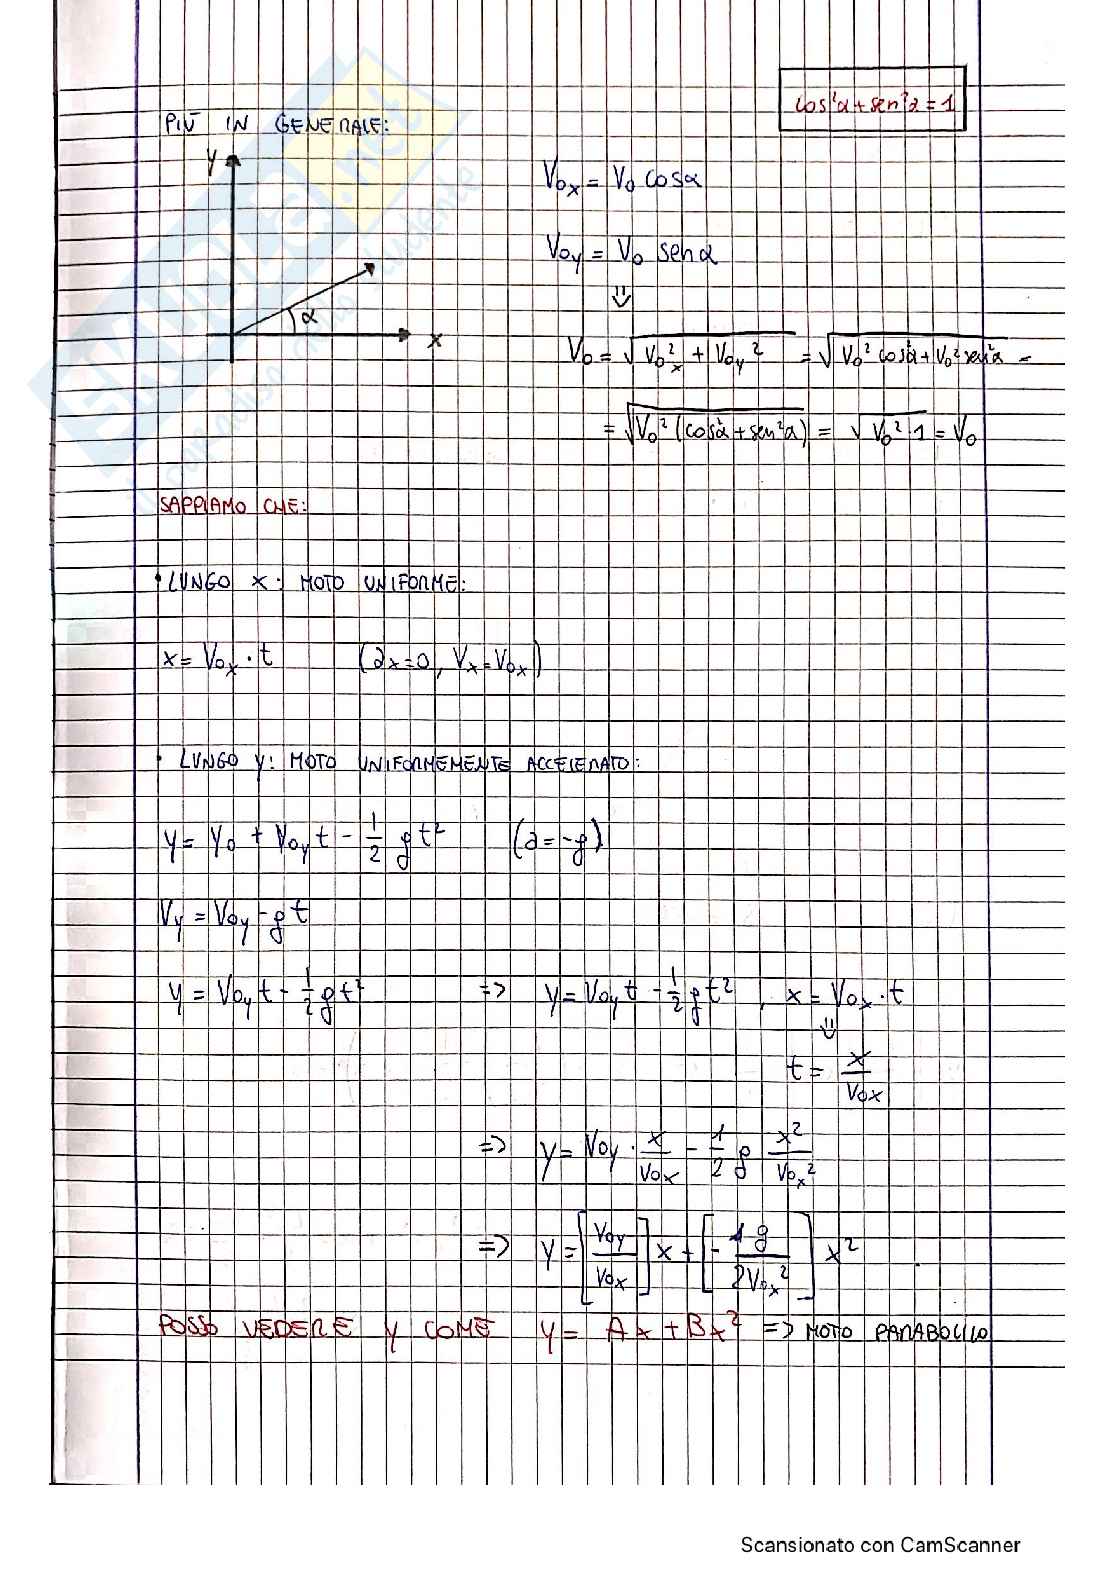 cos²α + sen²α = 1
PIÙ IN GENERALE:
y
V₀ₓ = V₀ cosα
V₀y = V₀ senα
⇓
α
x
V₀ = √(V₀ₓ² + V₀y²) = √(V₀² cos²α + V₀² sen²α) =
= √(V₀² (cos²α + sen²α)) = √(V₀² 1) = V₀
SAPPIAMO CHE:
• LUNGO X: MOTO UNIFORME:
x = V₀ₓ · t (aₓ = 0, Vₓ = V₀ₓ)
• LUNGO Y: MOTO UNIFORMEMENTE ACCELERATO:
y = y₀ + V₀y t - 1/2 g t² (a = -g)
Vy = V₀y - g t
y = V₀y t - 1/2 g t² => y = V₀y t - 1/2 g t² , x = V₀ₓ · t
⇓
t = x/V₀ₓ
=> y = V₀y · x/V₀ₓ - 1/2 g x²/V₀ₓ²
=> y = [V₀y/V₀ₓ] x + [- 1g/2V₀ₓ²] x²
POSSO VEDERE Y COME y = Ax + Bx² => MOTO PARABOLICO
Scansionato con CamScanner